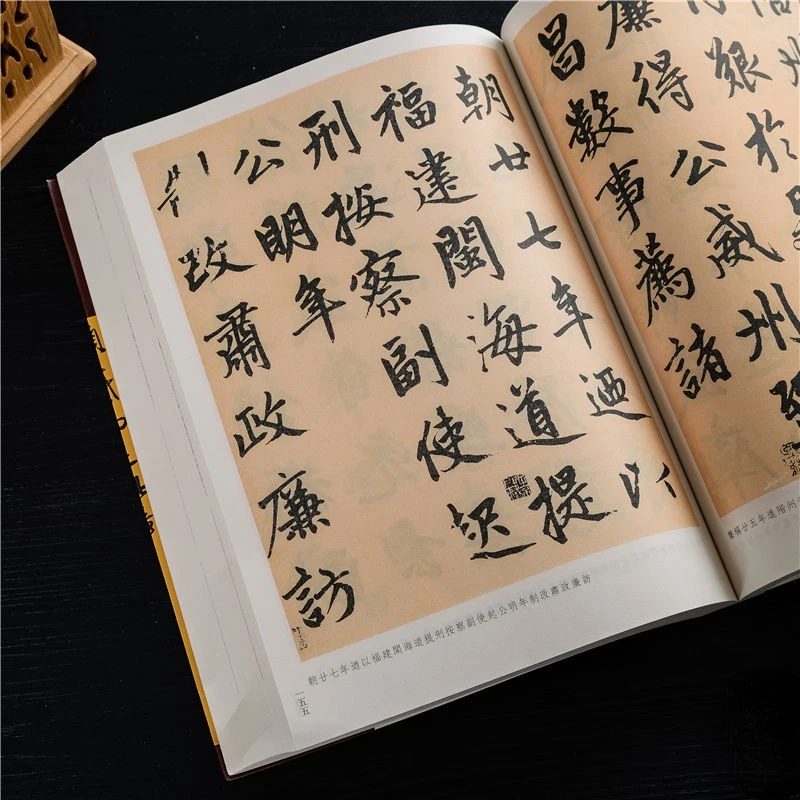 艱於
廉得公威州
昌數事薦諸
朝廿七年迺以
福建閩海道提
刑按察副使起
公明年
制改肅政廉訪
朝廿七年迺以福建閩海道提刑按察副使起公明年制改肅政廉訪
一五五
稱廿五年進階州